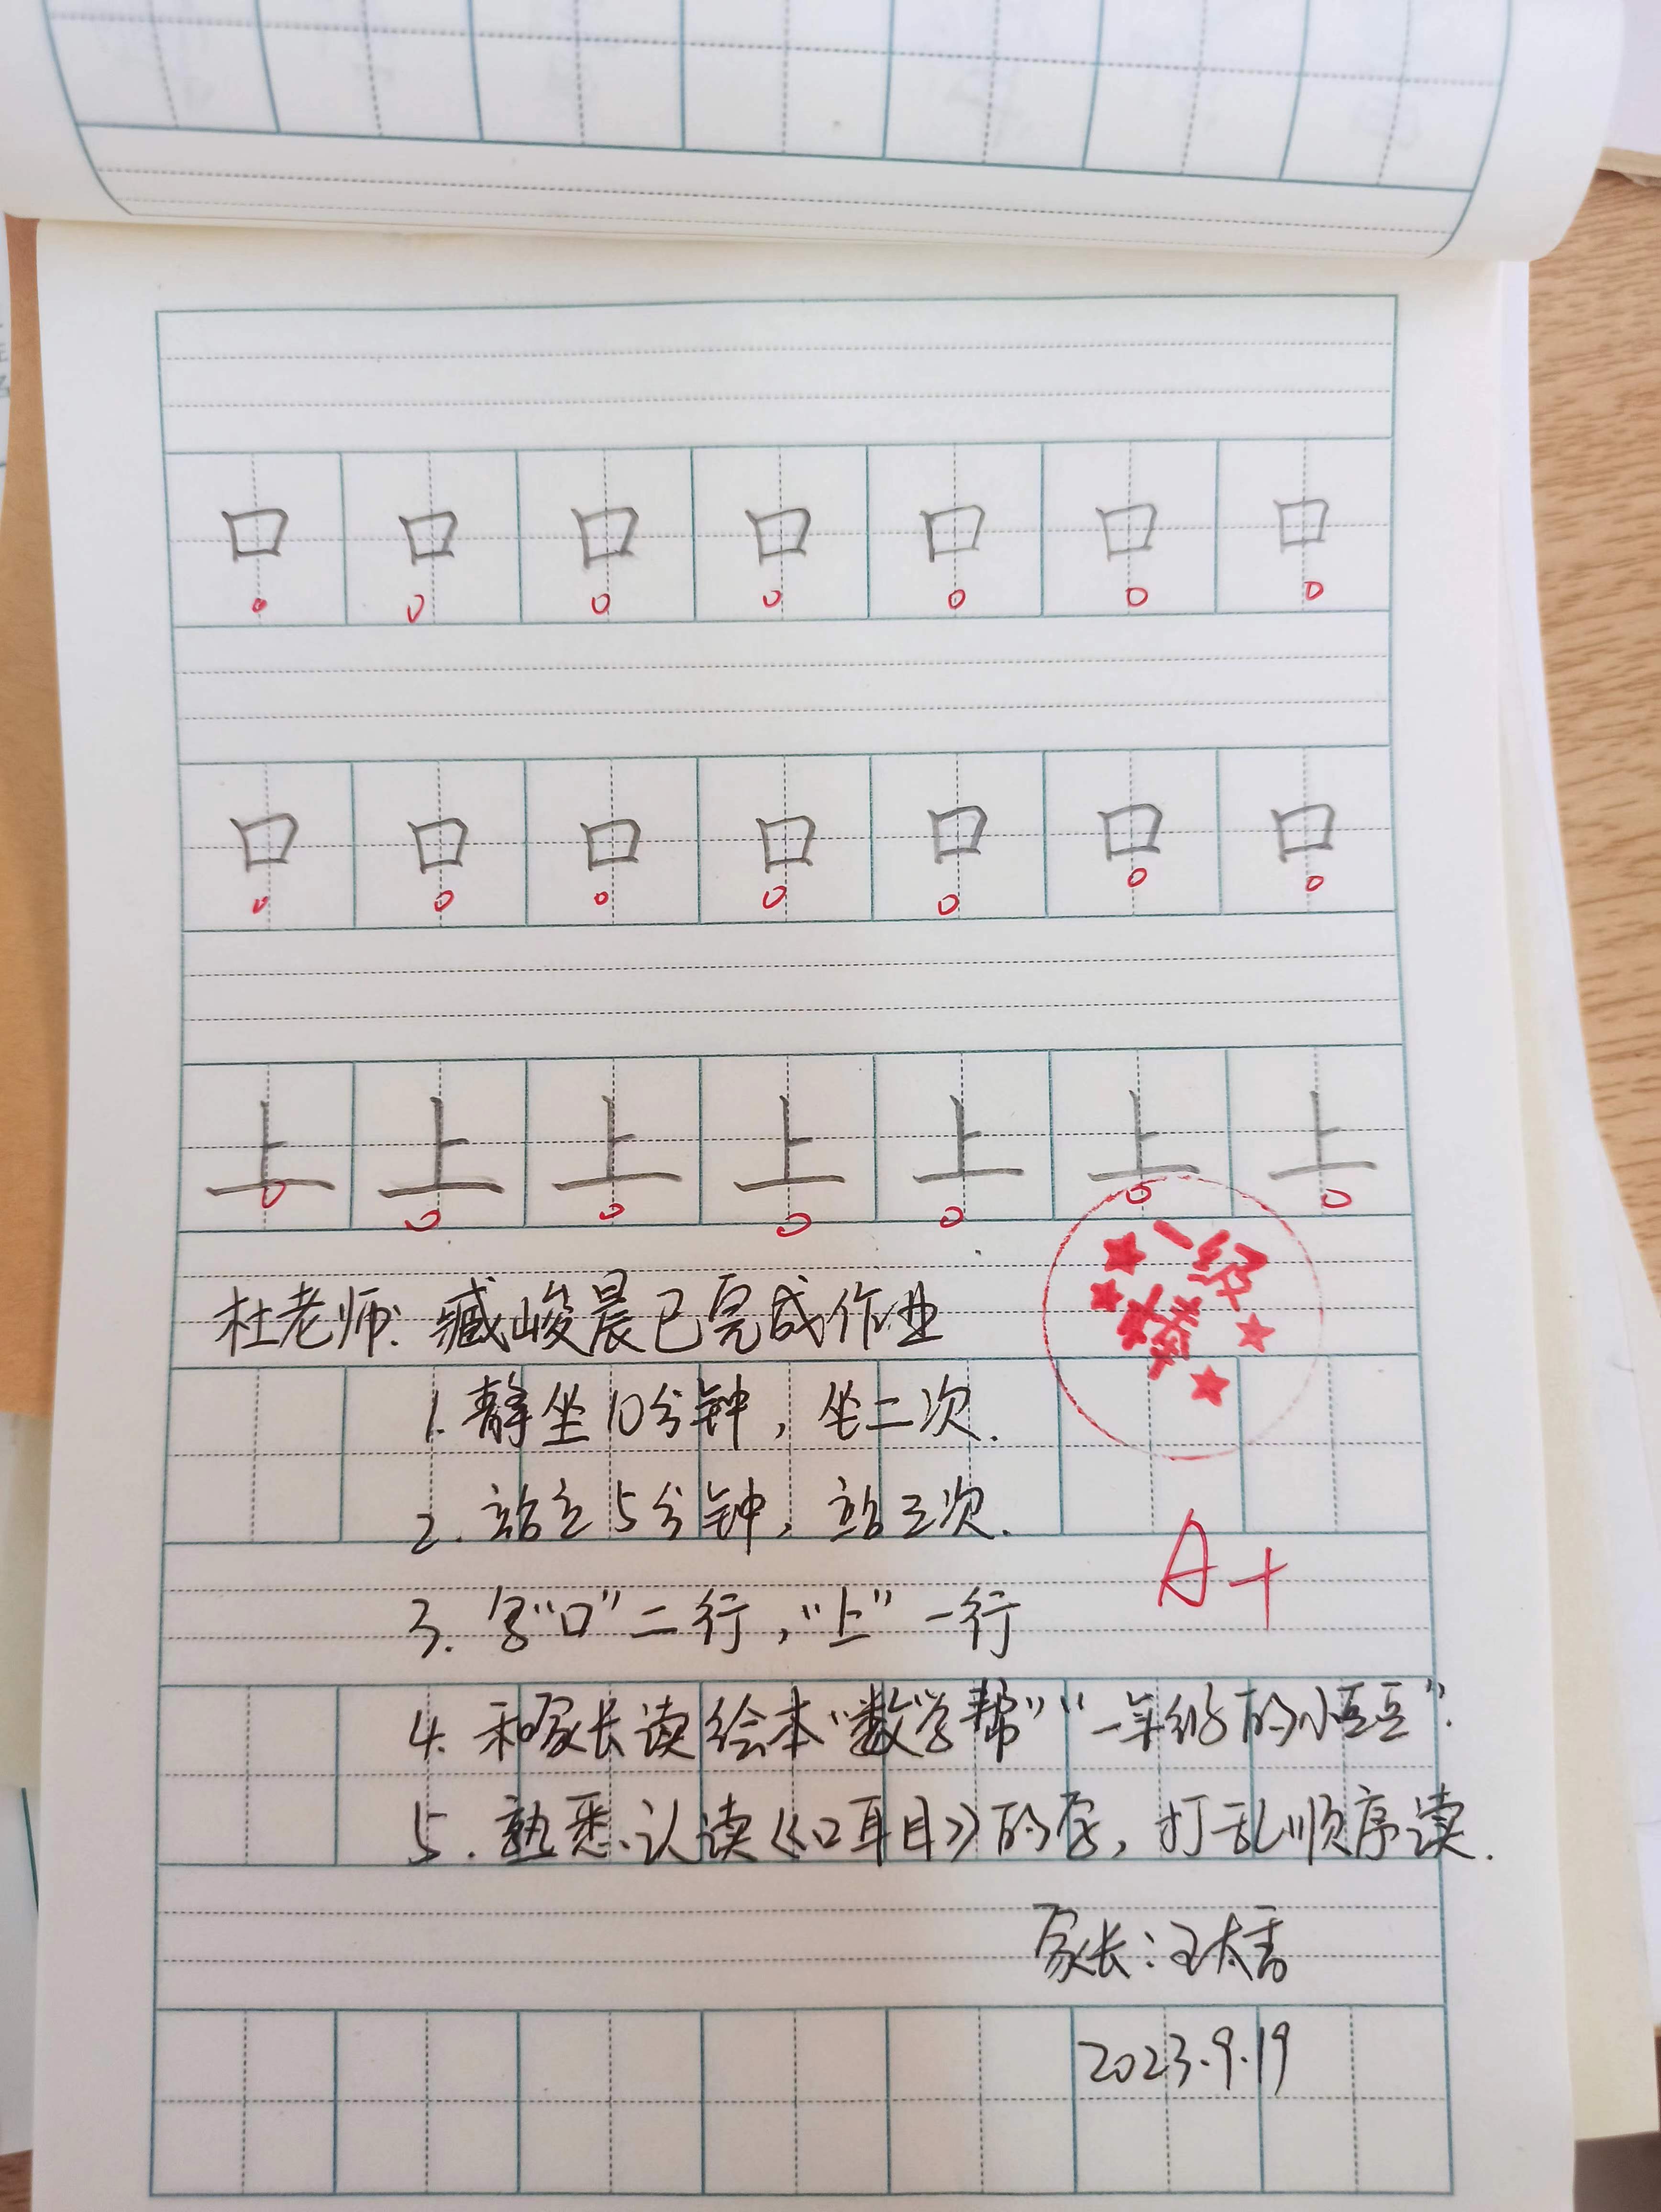 口 口 口 口 口 口 口
口 口 口 口 口 口 口
上 上 上 上 上 上 上
一级
棒
杜老师: 臧峻晨已完成作业
1. 静坐10分钟, 坐二次.
2. 站立5分钟, 站三次.
A+
3. 写“口”二行, “上”一行
4. 和家长读绘本“数学帮”“一年级的小豆豆”.
5. 熟悉、认读《口耳目》的字, 打乱顺序读.
家长: 王大
2023.9.19